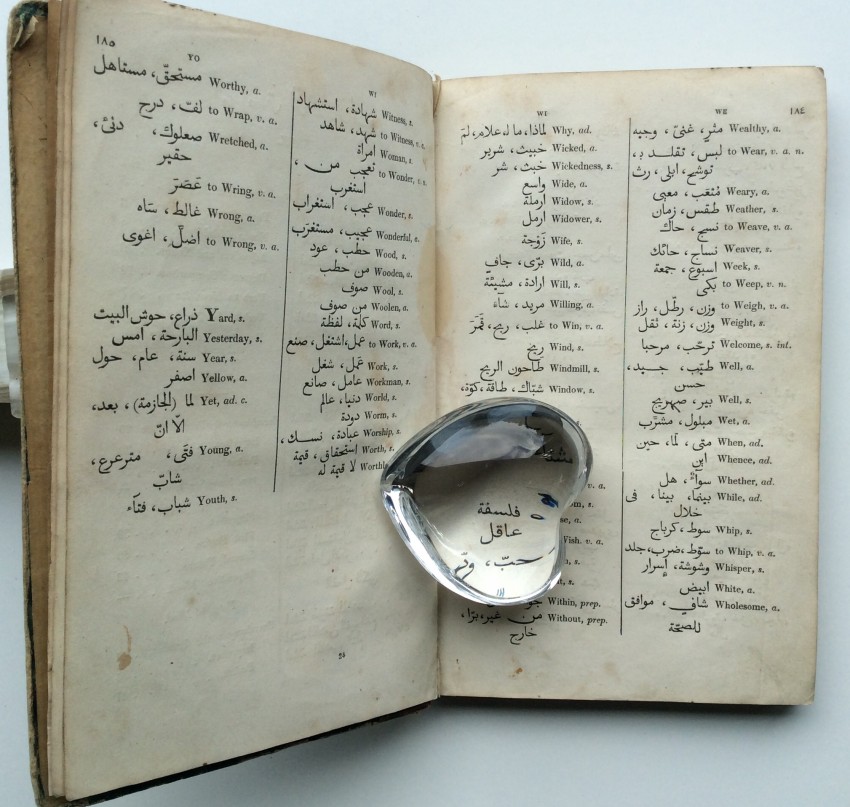 ١٨٤
WE
Wealthy, a. مثرٍ، غنىّ، وجيه
to Wear, v. a. n. لبس، تقلــد بـ،
توشح، ابلى، رث
Weary, a. مُتعَب، معيى
Weather, s. طقس، زمان
to Weave, v. a. نسج، حاك
Weaver, s. نساج، حائك
Week, s. اسبوع، جمعة
to Weep, v. n. بكى
to Weigh, v. a. وزن، رطّل، راز
Weight, s. وزن، زنة، ثقل
Welcome, s. int. ترحّب، مرحبا
Well, a. طيّب، جيــد،
حسن
Well, s. بير، صهريج
Wet, a. مبلول، مشرَّب
When, ad. متى، لمّا، حين
Whence, ad. اين
Whether, ad. سواءٌ، هل
While, ad. بينما، بينا، فى
خلال
Whip, s. سوط، كرباج
to Whip, v. a. سوّط، ضرب، جلد
Whisper, s. وشوشة، إسرار
White, a. ابيض
Wholesome, a. شافٍ، موافق
للصحّة
WI
Why, ad. لماذا، ما له، علام، لمَ
Wicked, a. خبيث، شرير
Wickedness, s. خبث، شر
Wide, a. واسع
Widow, s. ارملة
Widower, s. ارمل
Wife, s. زَوْجَة
Wild, a. برّى، جافٍ
Will, s. ارادة، مشيئة
Willing, a. مريد، شاءَ
to Win, v. a. غلب، ربح، قَمَرَ
Wind, s. ريح
Windmill, s. طاحون الريح
Window, s. شبّاك، طاقة، كوّة،
v. a.
فلسفة
عاقل
Wish. v. a.
حبّ،
Within, prep.
Without, prep. من غير، برّا،
خارج
WI
Witness, s. شهادة، استشهاد
to Witness, v. شهد، شاهد
Woman, s. امرأة
to Wonder, v. n. تعجب من،
استغرب
Wonder, s. عجب، استغراب
Wonderful, s. عجيب، مستغرَب
Wood, s. حطب، عود
Wooden, a. من حطب
Wool, s. صوف
Woolen, a. من صوف
Word, s. كلمة، لفظة
to Work, v. a. عمل، اشتغل، صنع
Work, s. عَمَل، شغل
Workman, s. عامل، صانع
World, s. دنيا، عالم
Worm, s. دودة
Worship, s. عبادة، نسـك،
Worth, s. استحقاق، قيمة
لا قيمة له
١٨٥
YO
Worthy, a. مستحقّ، مستاهل
to Wrap, v. a. لفّ، درج
Wretched, a. صعلوك، دنىّ،
حقير
to Wring, v. a. عَصَرَ
Wrong, a. غالط، ساه
to Wrong, v. a. اضلّ، اغوى
Yard, s. ذراع، حوش البيت
Yesterday, s. البارحة، امس
Year, s. سنة، عام، حول
Yellow, a. اصفر
Yet, ad. c. لما (الجازمة)، بعد،
الّا انّ
Young, a. فتًى، مترعرع،
شابّ
Youth, s. شباب، فتآء
24